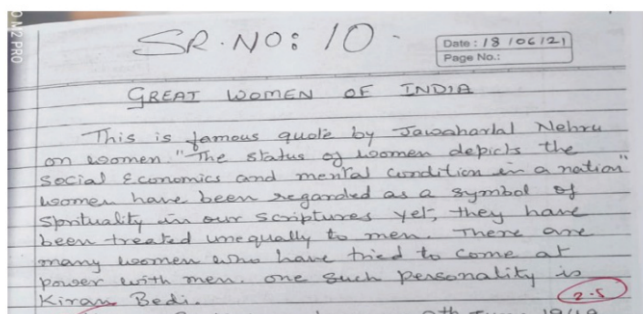 SR. NO: 10.
Date: 18/06/21
Page No.:
GREAT WOMEN OF INDIA
This is famous quote by Jawaharlal Nehru
on women "The status of women depicts the
social Economics and mental condition in a nation"
women have been regarded as a symbol of
Spirituality in our Scriptures yet, they have
been treated unequally to men. There are
many women who have tried to come at
power with men. one such personality is
Kiran Bedi.
2.5